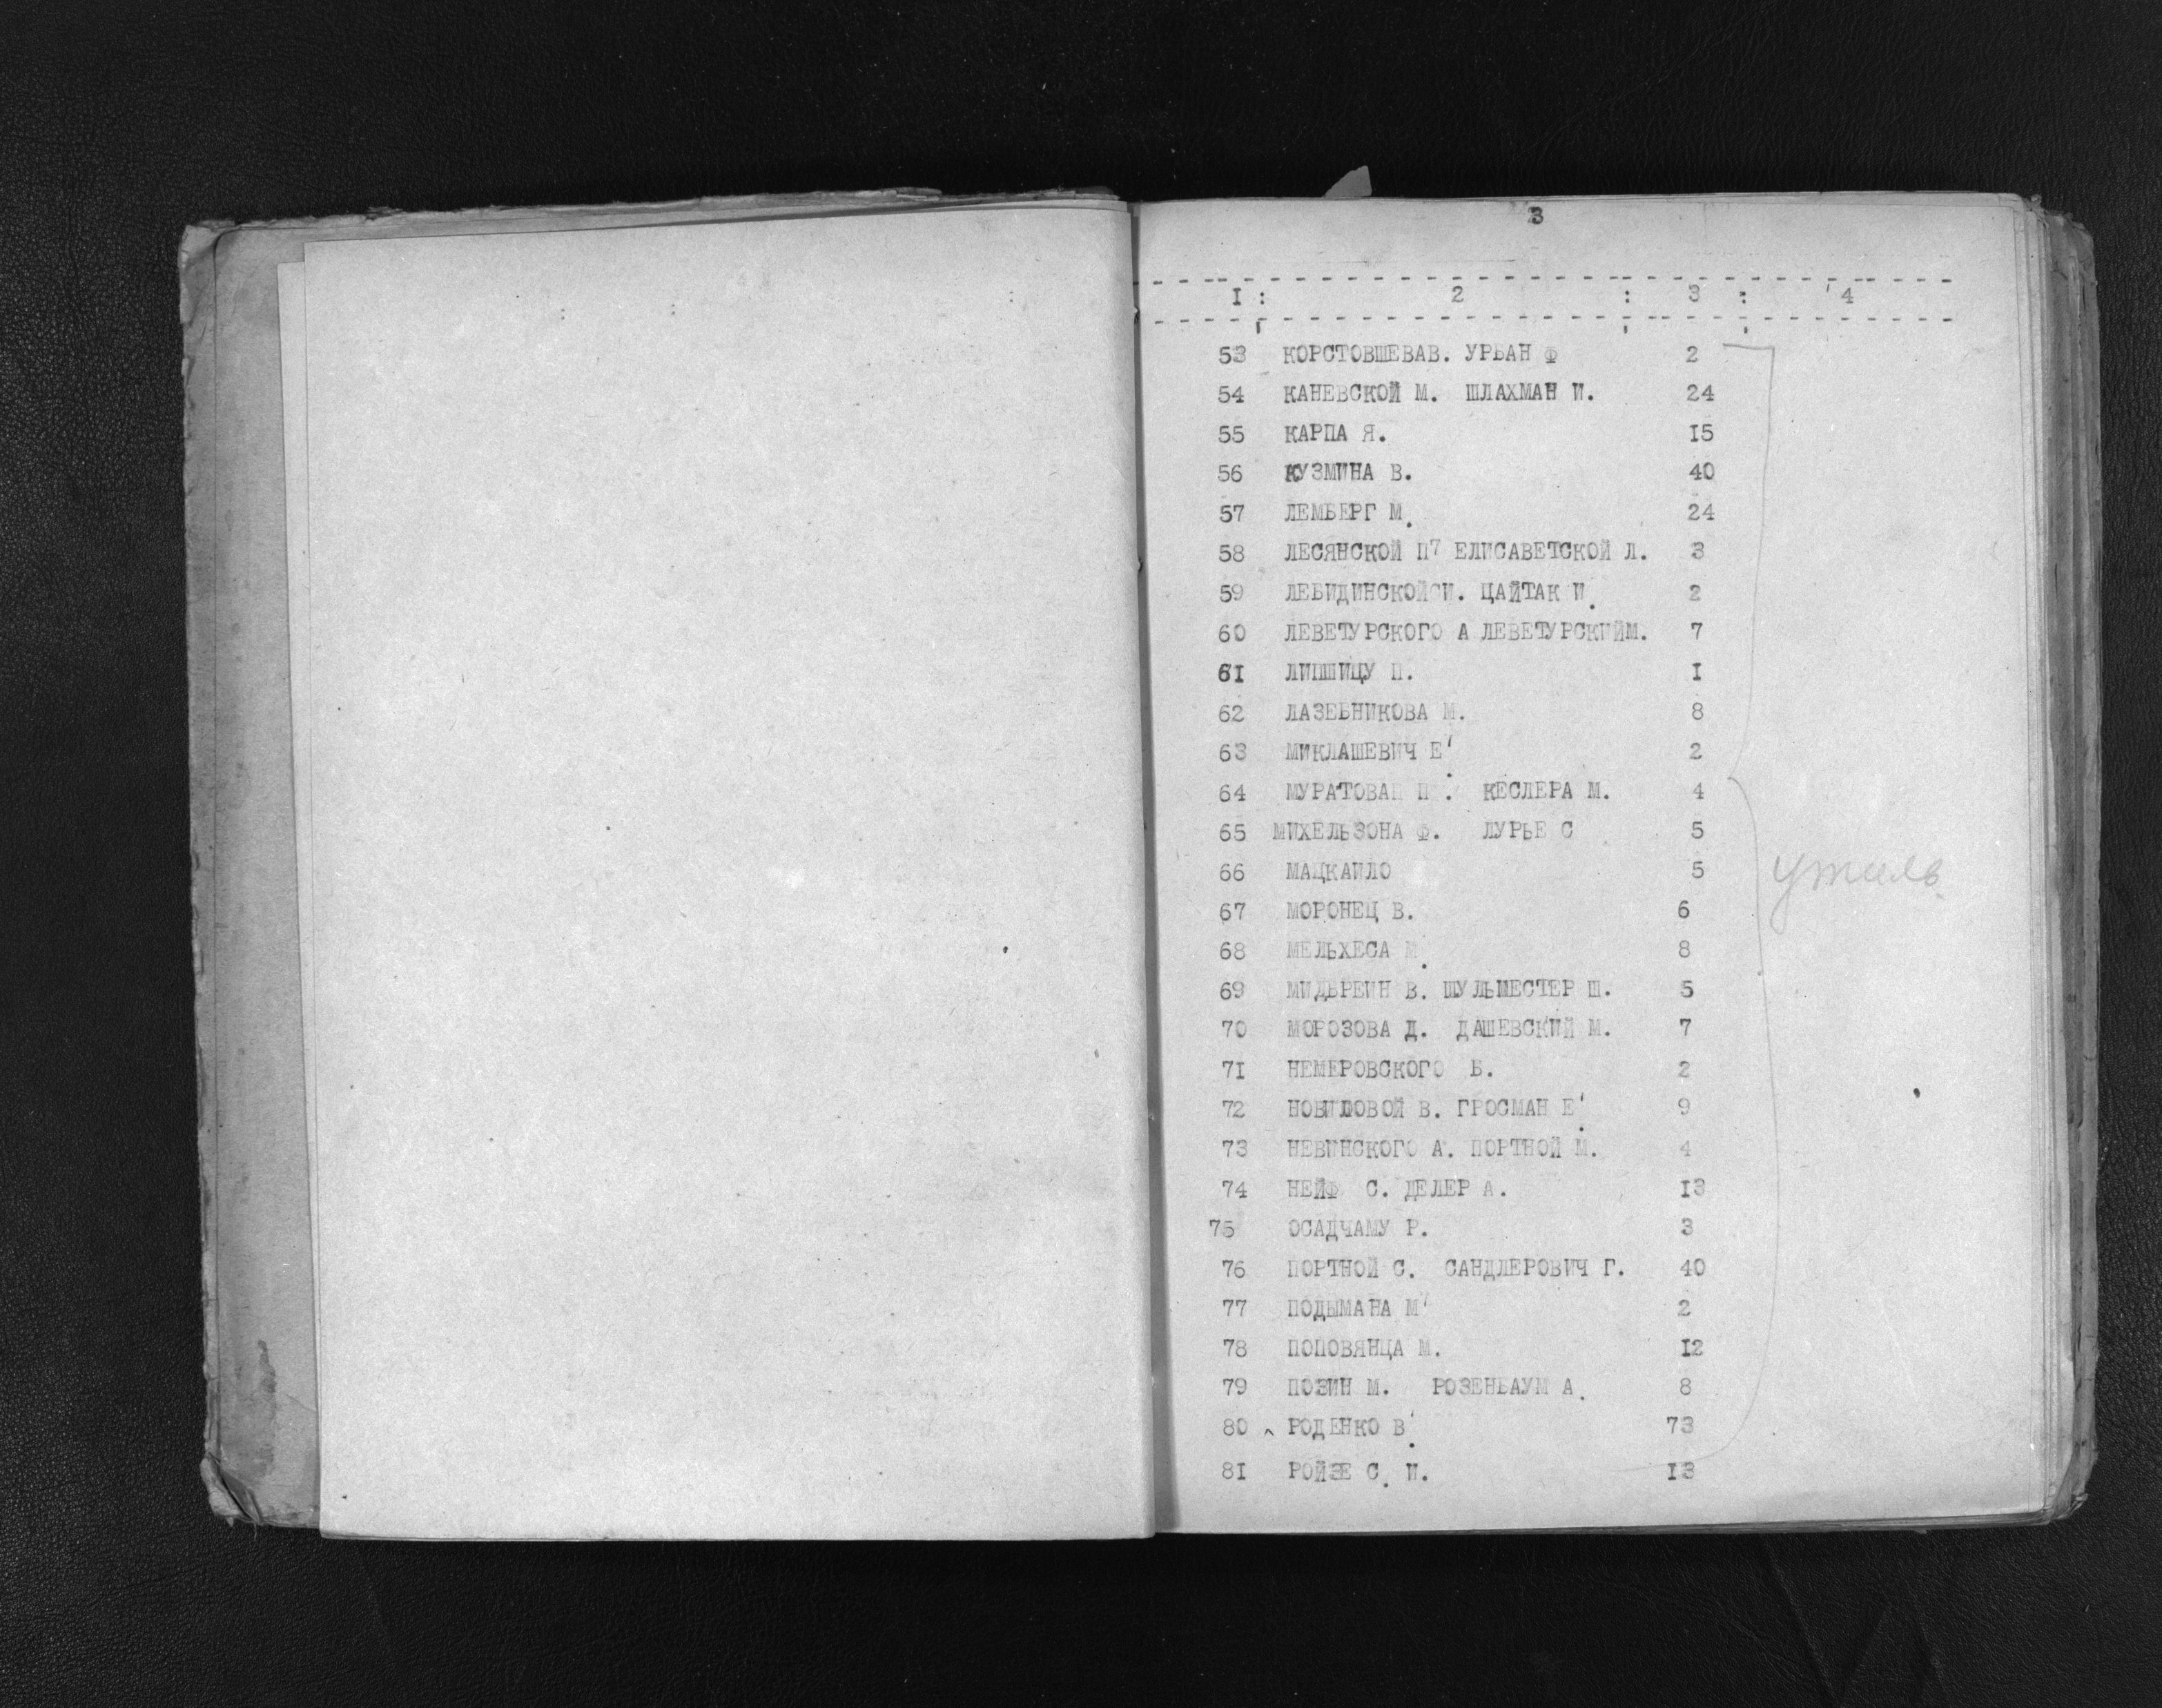 3
I : 2 : 3 : 4
53 КОРСТОВШЕВАВ. УРБАН Ф 2
54 КАНЕВСКОЙ М. ШЛАХМАН И. 24
55 КАРПА Я. I5
56 КУЗМИНА В. 40
57 ЛЕМБЕРГ М. 24
58 ЛЕСЯНСКОЙ П7 ЕЛИСАВЕТСКОЙ Л. 3
59 ЛЕБИДИНСКОЙ И. ЦАЙТАК И. 2
60 ЛЕВЕТУРСКОГО А ЛЕВЕТУРСКИЙМ. 7
6I ЛИПШИЦУ П. I
62 ЛАЗЕБНИКОВА М. 8
63 МИКЛАШЕВИЧ Е' 2
64 МУРАТОВА П . КЕСЛЕРА М. 4
65 МИХЕЛЬЗОНА Ф. ЛУРЬЕ С 5
66 МАЦКАИЛО 5
67 МОРОНЕЦ В. 6
68 МЕЛЬХЕСА М. 8
69 В. ШУЛЬМЕСТЕР Ш. 5
70 МОРОЗОВА Д. ДАШЕВСКИЙ М. 7
7I НЕМЕРОВСКОГО Б. 2
72 В. ГРОСМАН Е' 9
73 НЕВИНСКОГО А. ПОРТНОЙ М. 4
74 НЕЙФ С. ДЕЛЕР А. I3
75 ОСАДЧАМУ Р. 3
76 ПОРТНОЙ С. САНДЛЕРОВИЧ Г. 40
77 ПОДЫМАНА М' 2
78 ПОПОВЯНЦА М. I2
79 ПОЗИН М. РОЗЕНБАУМ А. 8
80 РОДЕНКО В' 73
8I РОЙЗЕ С. И. I3
утиль